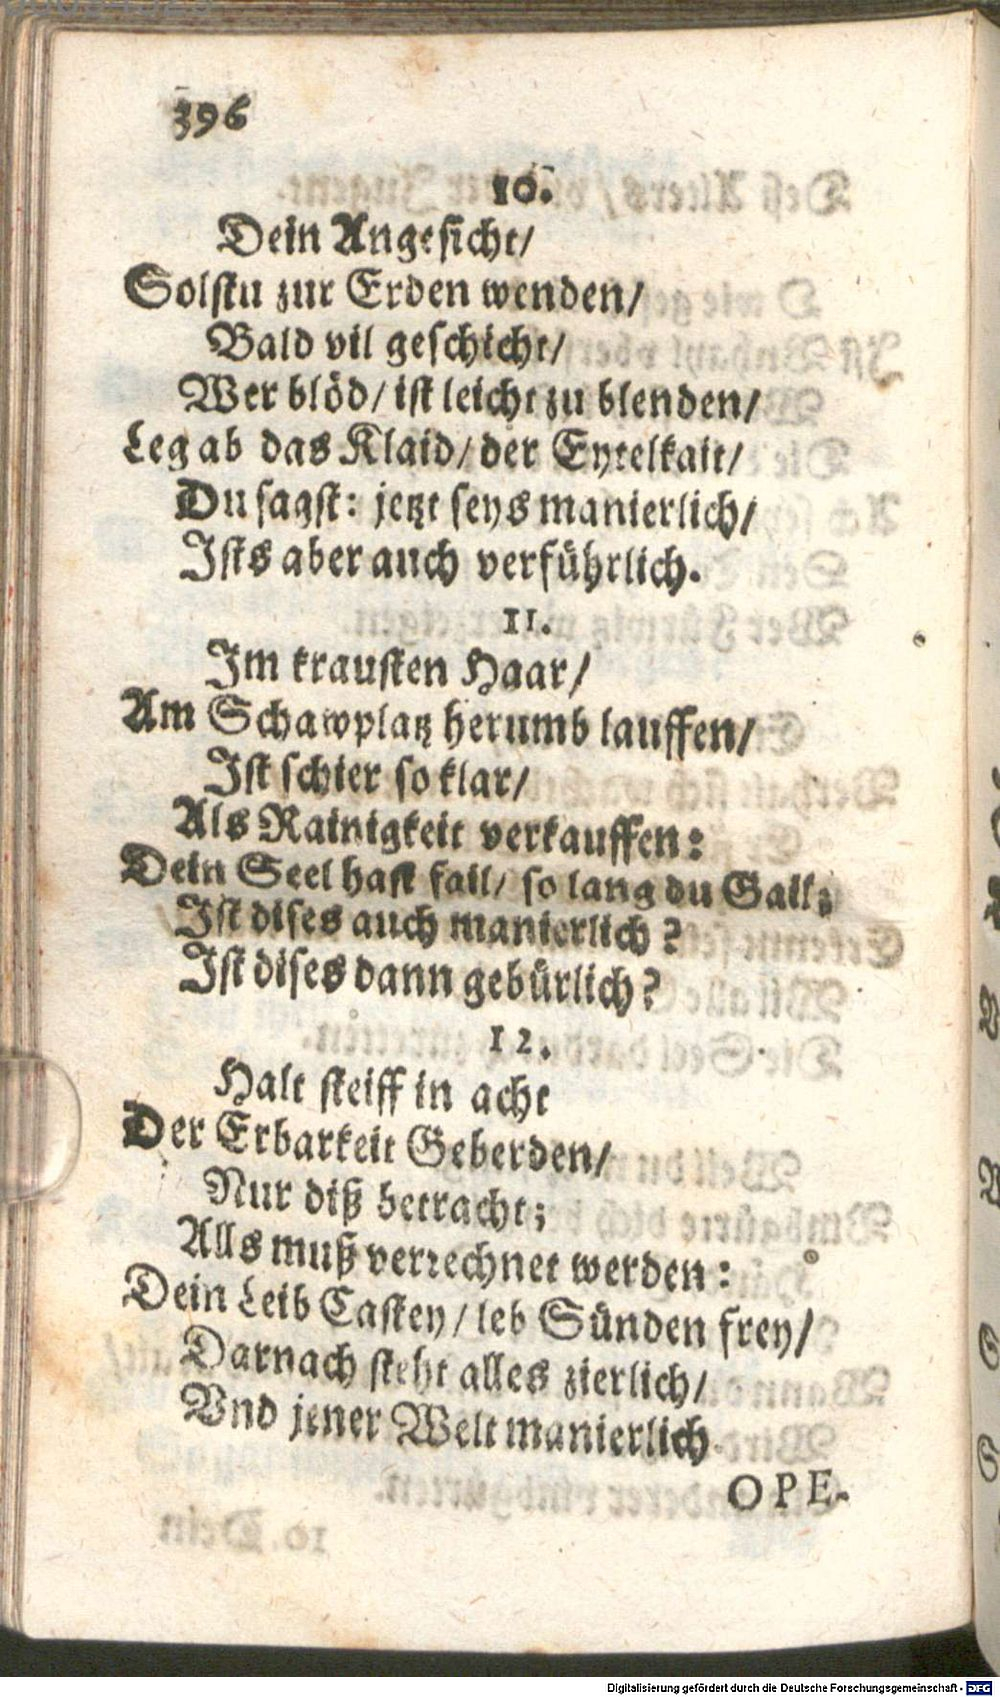 396
10.
Dein Angesicht/
Solstu zur Erden wenden/
Bald vil geschicht/
Wer blöd/ ist leicht zu blenden/
Leg ab das Klaid/ der Eytelkait/
Du sagst: jetzt seys manierlich/
Ists aber auch verführlich.
11.
Im krausten Haar/
Am Schawplatz herumb lauffen/
Ist schier so klar/
Als Rainigkeit verkauffen:
Dein Seel hast fail/ so lang du Gail;
Ist dises auch manierlich?
Ist dises dann gebürlich?
12.
Halt steiff in acht
Der Erbarkeit Geberden/
Nur diß betracht;
Alls muß verrechnet werden:
Dein Leib Castey/ leb Sünden frey/
Darnach steht alles zierlich/
Vnd jener Welt manierlich.
OPE-
Digitalisierung gefördert durch die Deutsche Forschungsgemeinschaft - DFG